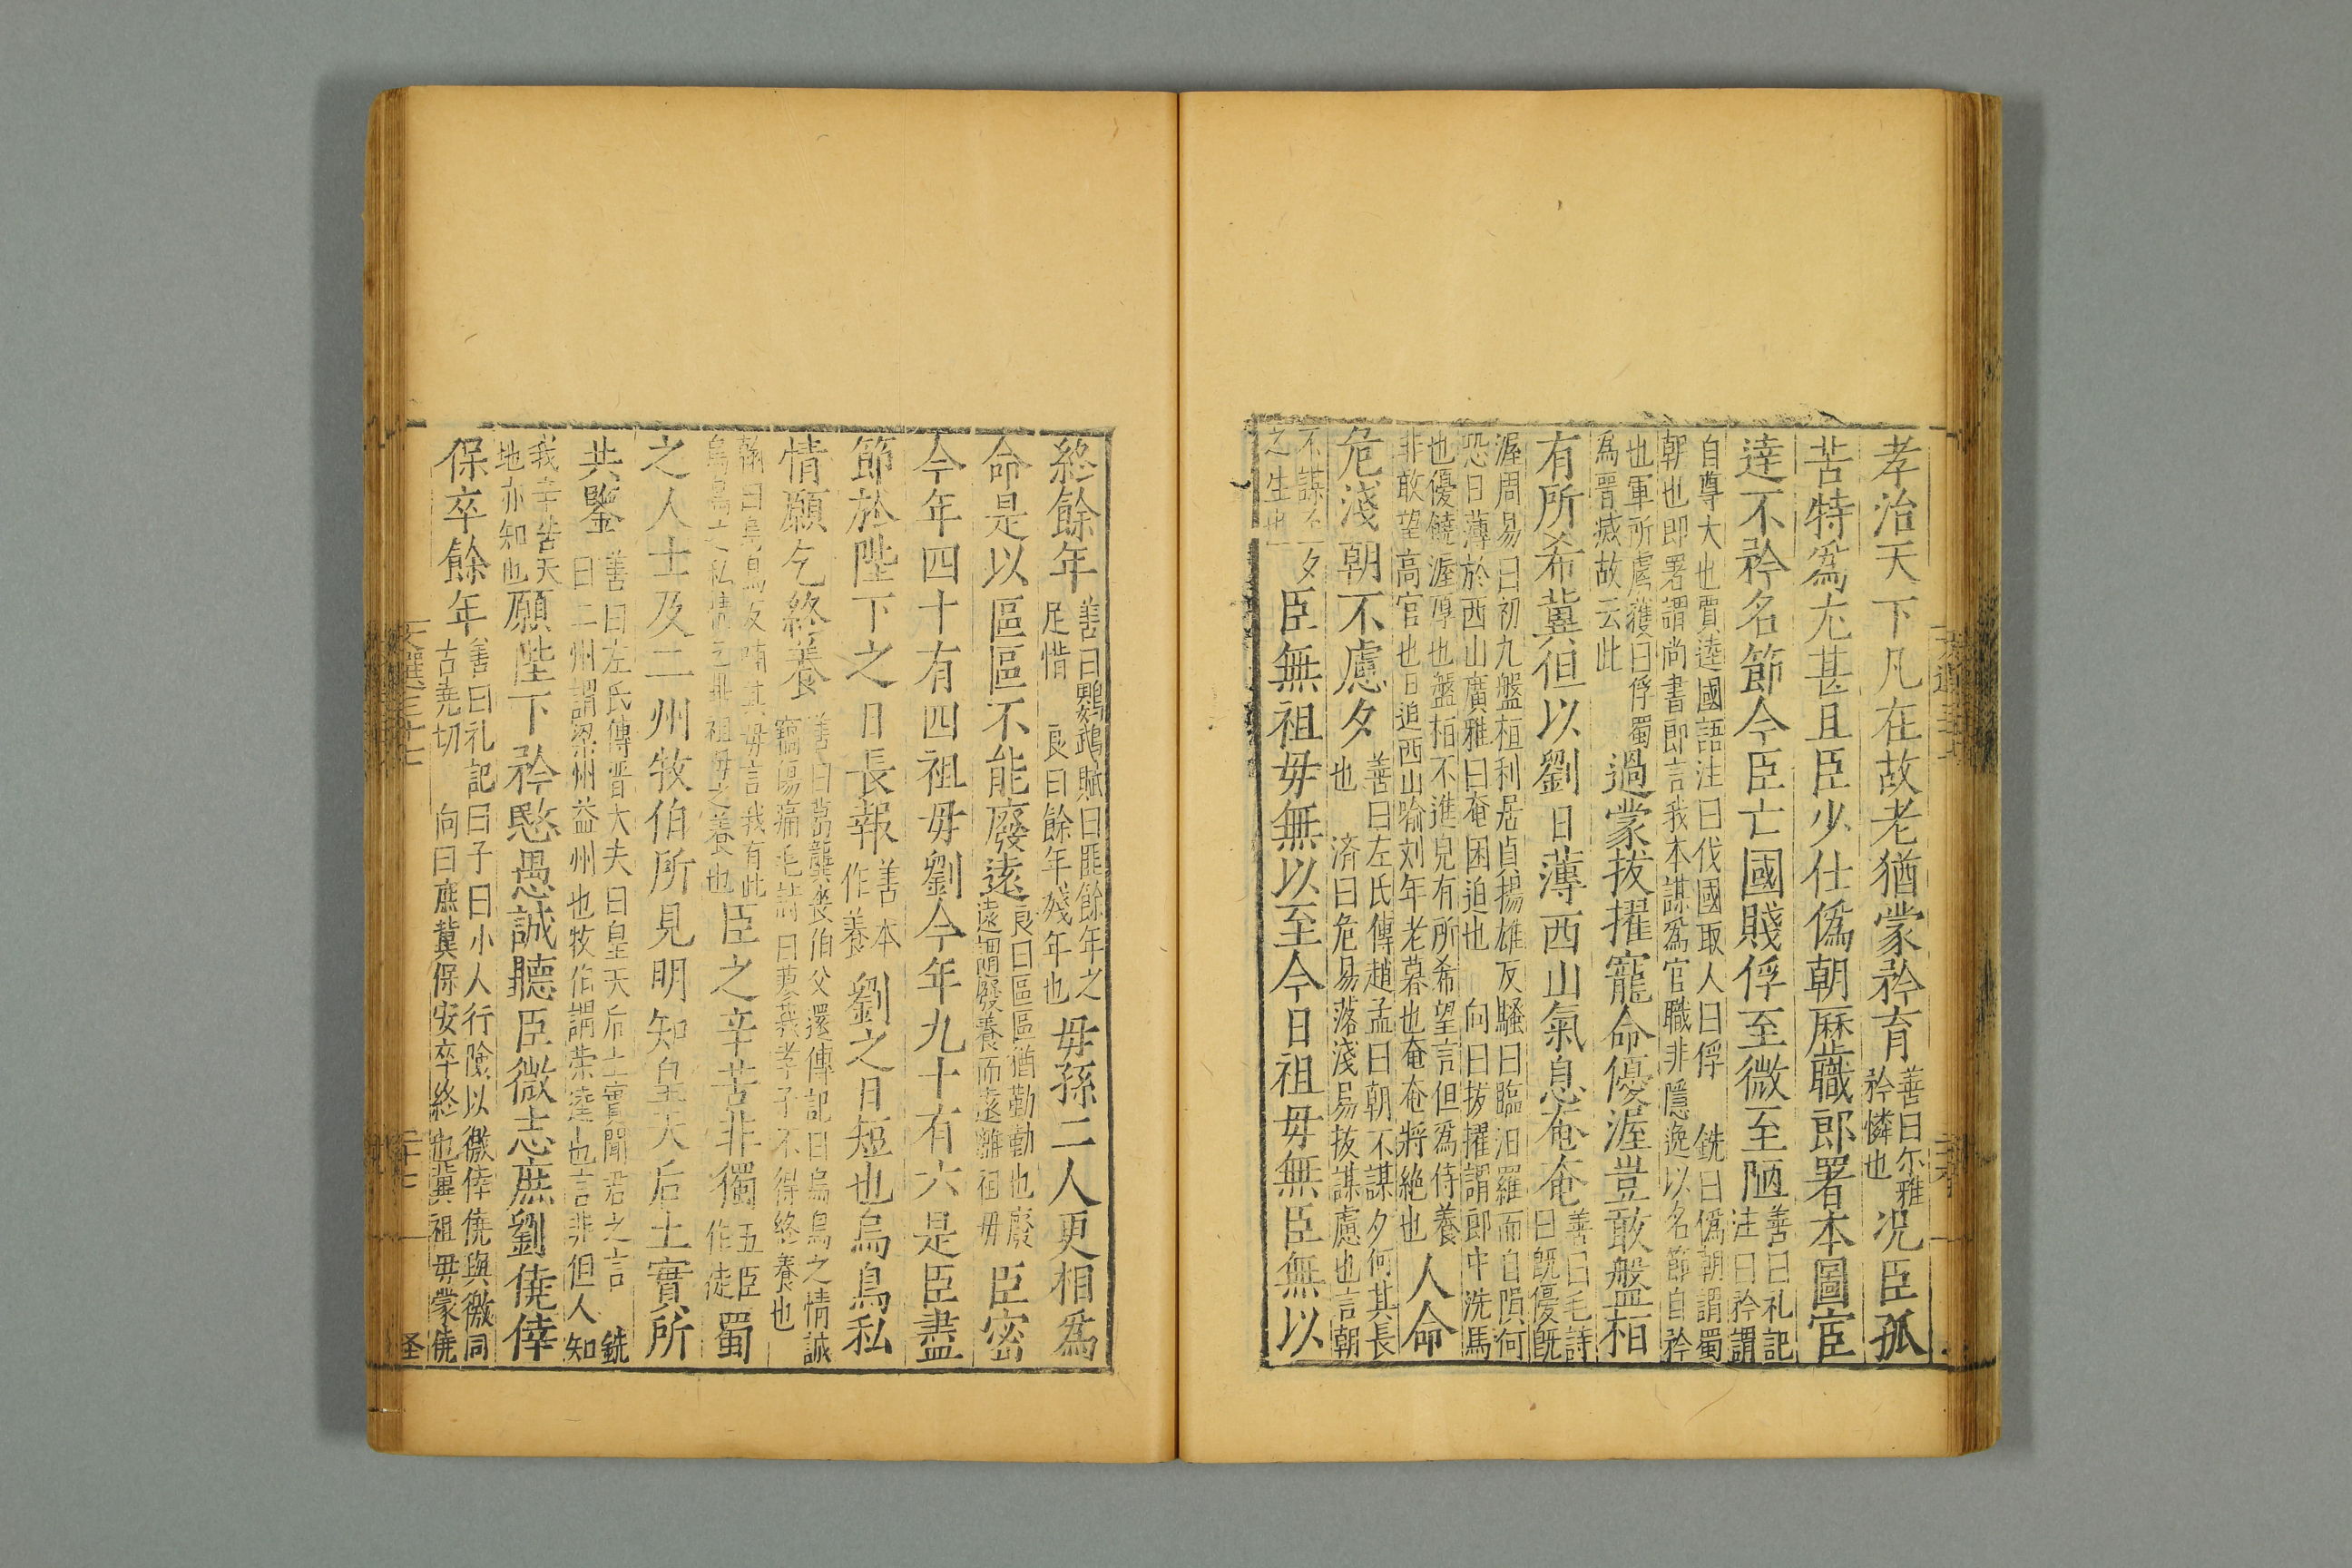 孝治天下凡在故老猶蒙矜育善曰尓雅矜憐也况臣孤
苦特爲尤甚且臣少仕僞朝歷職郎署本圖宦
達不矜名節今臣亡國賤俘至微至陋善曰礼記注曰矜謂
自尊大也賈逵國語注曰伐國取人曰俘 銑曰僞朝謂蜀
朝也郎署謂尚書郎言我本謀爲官職非隱逸以名節自矜
也軍所虜獲曰俘蜀爲晋滅故云此過蒙拔擢寵命優渥豈敢盤桓
有所希冀但以劉日薄西山氣息奄奄善曰毛詩曰旣優旣
渥周易曰初九盤桓利居貞揚雄反騷曰臨汨羅而自隕何
恐日薄於西山廣雅曰奄困迫也 向曰拔擢謂郎中洗馬
也優饒渥厚也盤桓不進皃有所希望言但爲侍養
非敢望高官也日迫西山喻刘年老暮也奄奄將絶也人命
危淺朝不慮夕善曰左氏傳趙孟曰朝不謀夕何其長也 済曰危易落淺易拔謀慮也言朝
不謀至夕之生也臣無祖毋無以至今日祖毋無臣無以
終餘年善曰鸚鵡賦曰匪餘年之足惜 良曰餘年殘年也毋孫二人更相爲
命是以區區不能廢遠良曰區區猶勤勤也廢遠謂廢養而遠離祖毋臣密
今年四十有四祖毋劉今年九十有六是臣盡
節於陛下之日長報善本作養劉之日短也烏鳥私
情願乞終養善曰葛龔喪伯父還傳記曰烏鳥之情誠竊傷痛毛詩曰蓼莪孝子不得終養也
翰曰烏鳥反哺其毋言我有此烏鳥之私情乞畢祖毋之養也臣之辛苦非獨五臣作徒蜀
之人士及二州牧伯所見明知皇天后土實所
共鑒善曰左氏傳晋大夫曰皇天后土實聞君之言 銑曰二州謂梁州益州也牧伯謂榮逵也言非但人知
我辛苦天地亦知也願陛下矜愍愚誠聽臣微志庶劉僥倖
保卒餘年善曰礼記曰子曰小人行險以徼倖僥與徼同古堯切 向曰庶冀保安卒終也冀祖毋蒙僥